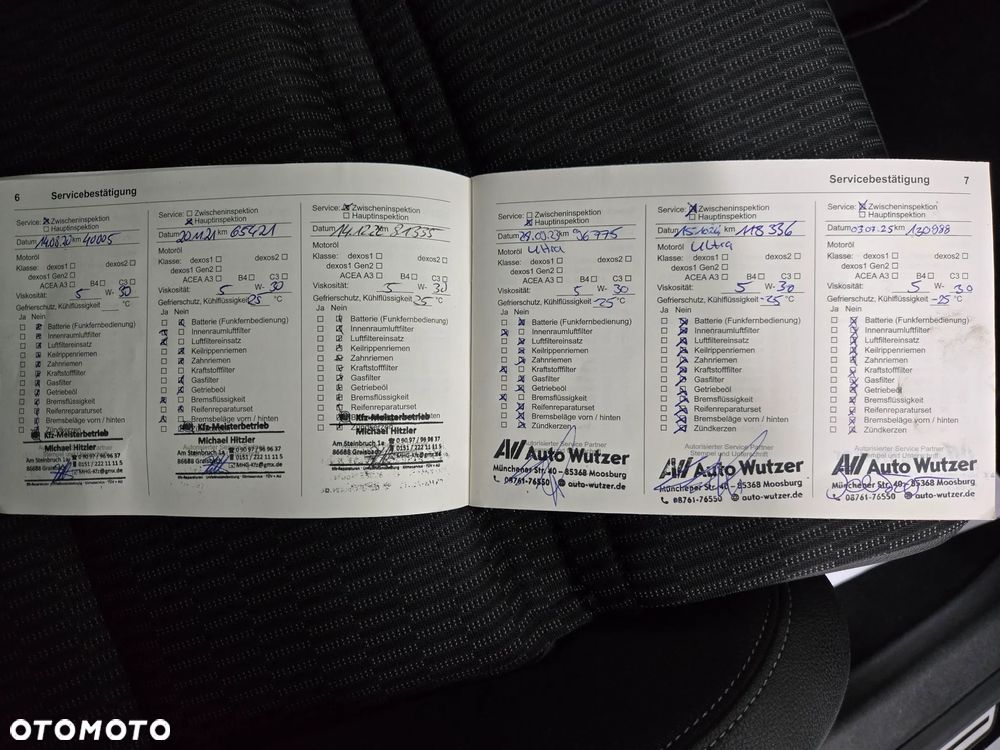 6 Servicebestätigung
Service: Zwischeninspektion
Hauptinspektion
Datum 14.08.20 km 40005
Motoröl
Klasse: dexos1 dexos2
dexos1 Gen2
ACEA A3 B4 C3
Viskosität: 5 W- 30
Gefrierschutz, Kühlflüssigkeit °C
Ja Nein
Batterie (Funkfernbedienung)
Innenraumluftfilter
Luftfiltereinsatz
Keilrippenriemen
Zahnriemen
Kraftstofffilter
Gasfilter
Getriebeöl
Bremsflüssigkeit
Reifenreparaturset
Bremsbeläge vorn / hinten
Zündkerzen
Kfz-Meisterbetrieb
Michael Hitzler
Am Steinbruch 1a
86688 Graisbach
0 90 97 / 96 96 37
0151 / 222 11 11 5
MHG-Kfz@gmx.de
Service: Zwischeninspektion
Hauptinspektion
Datum 20.11.21 km 65421
Motoröl
Klasse: dexos1 dexos2
dexos1 Gen2
ACEA A3 B4 C3
Viskosität: 5 W- 30
Gefrierschutz, Kühlflüssigkeit 25 °C
Ja Nein
Batterie (Funkfernbedienung)
Innenraumluftfilter
Luftfiltereinsatz
Keilrippenriemen
Zahnriemen
Kraftstofffilter
Gasfilter
Getriebeöl
Bremsflüssigkeit
Reifenreparaturset
Bremsbeläge vorn / hinten
Kfz-Meisterbetrieb
Michael Hitzler
Am Steinbruch 1a
86688 Graisbach
0 90 97 / 96 96 37
0151 / 222 11 11 5
MHG-Kfz@gmx.de
Service: Zwischeninspektion
Hauptinspektion
Datum 14.12.22 km 81355
Motoröl
Klasse: dexos1 dexos2
dexos1 Gen2
ACEA A3 B4 C3
Viskosität: 5 W- 30
Gefrierschutz, Kühlflüssigkeit 25 °C
Ja Nein
Batterie (Funkfernbedienung)
Innenraumluftfilter
Luftfiltereinsatz
Keilrippenriemen
Zahnriemen
Kraftstofffilter
Gasfilter
Getriebeöl
Bremsflüssigkeit
Reifenreparaturset
Kfz-Meisterbetrieb
Michael Hitzler
Am Steinbruch 1a
86688 Graisbach
0 90 97 / 96 96 37
0151 / 222 11 11 5
MHG-Kfz@gmx.de
Servicebestätigung 7
Service: Zwischeninspektion
Hauptinspektion
km 96775
Motoröl Ultra
Klasse: dexos1 dexos2
dexos1 Gen2
ACEA A3 B4 C3
Viskosität: 5 W- 30
Gefrierschutz, Kühlflüssigkeit -25 °C
Ja Nein
Batterie (Funkfernbedienung)
Innenraumluftfilter
Luftfiltereinsatz
Keilrippenriemen
Zahnriemen
Kraftstofffilter
Gasfilter
Getriebeöl
Bremsflüssigkeit
Reifenreparaturset
Bremsbeläge vorn / hinten
Zündkerzen
Autorisierter Service Partner
AW Auto Wutzer
Münchener Str. 40 – 85368 Moosburg
08761-76550 auto-wutzer.de
Service: Zwischeninspektion
Hauptinspektion
Datum 15.10.24 km 118 336
Motoröl Ultra
Klasse: dexos1 dexos2
dexos1 Gen2
ACEA A3 B4 C3
Viskosität: 5 W- 30
Gefrierschutz, Kühlflüssigkeit -25 °C
Ja Nein
Batterie (Funkfernbedienung)
Innenraumluftfilter
Luftfiltereinsatz
Keilrippenriemen
Zahnriemen
Kraftstofffilter
Gasfilter
Getriebeöl
Bremsflüssigkeit
Reifenreparaturset
Bremsbeläge vorn / hinten
Zündkerzen
Autorisierter Service Partner
Stempel und Unterschrift
AW Auto Wutzer
Münchener Str. 40 – 85368 Moosburg
08761-76550 auto-wutzer.de
Service: Zwischeninspektion
Hauptinspektion
Datum 03.07.25 km 130988
Motoröl
Klasse: dexos1 dexos2
dexos1 Gen2
ACEA A3 B4 C3
Viskosität: 5 W- 30
Gefrierschutz, Kühlflüssigkeit -25 °C
Ja Nein
Batterie (Funkfernbedienung)
Innenraumluftfilter
Luftfiltereinsatz
Keilrippenriemen
Zahnriemen
Kraftstofffilter
Gasfilter
Getriebeöl
Bremsflüssigkeit
Reifenreparaturset
Bremsbeläge vorn / hinten
Zündkerzen
Autorisierter Service Partner
Stempel und Unterschrift
AW Auto Wutzer
Münchener Str. 40 – 85368 Moosburg
08761-76550 auto-wutzer.de
OTOMOTO